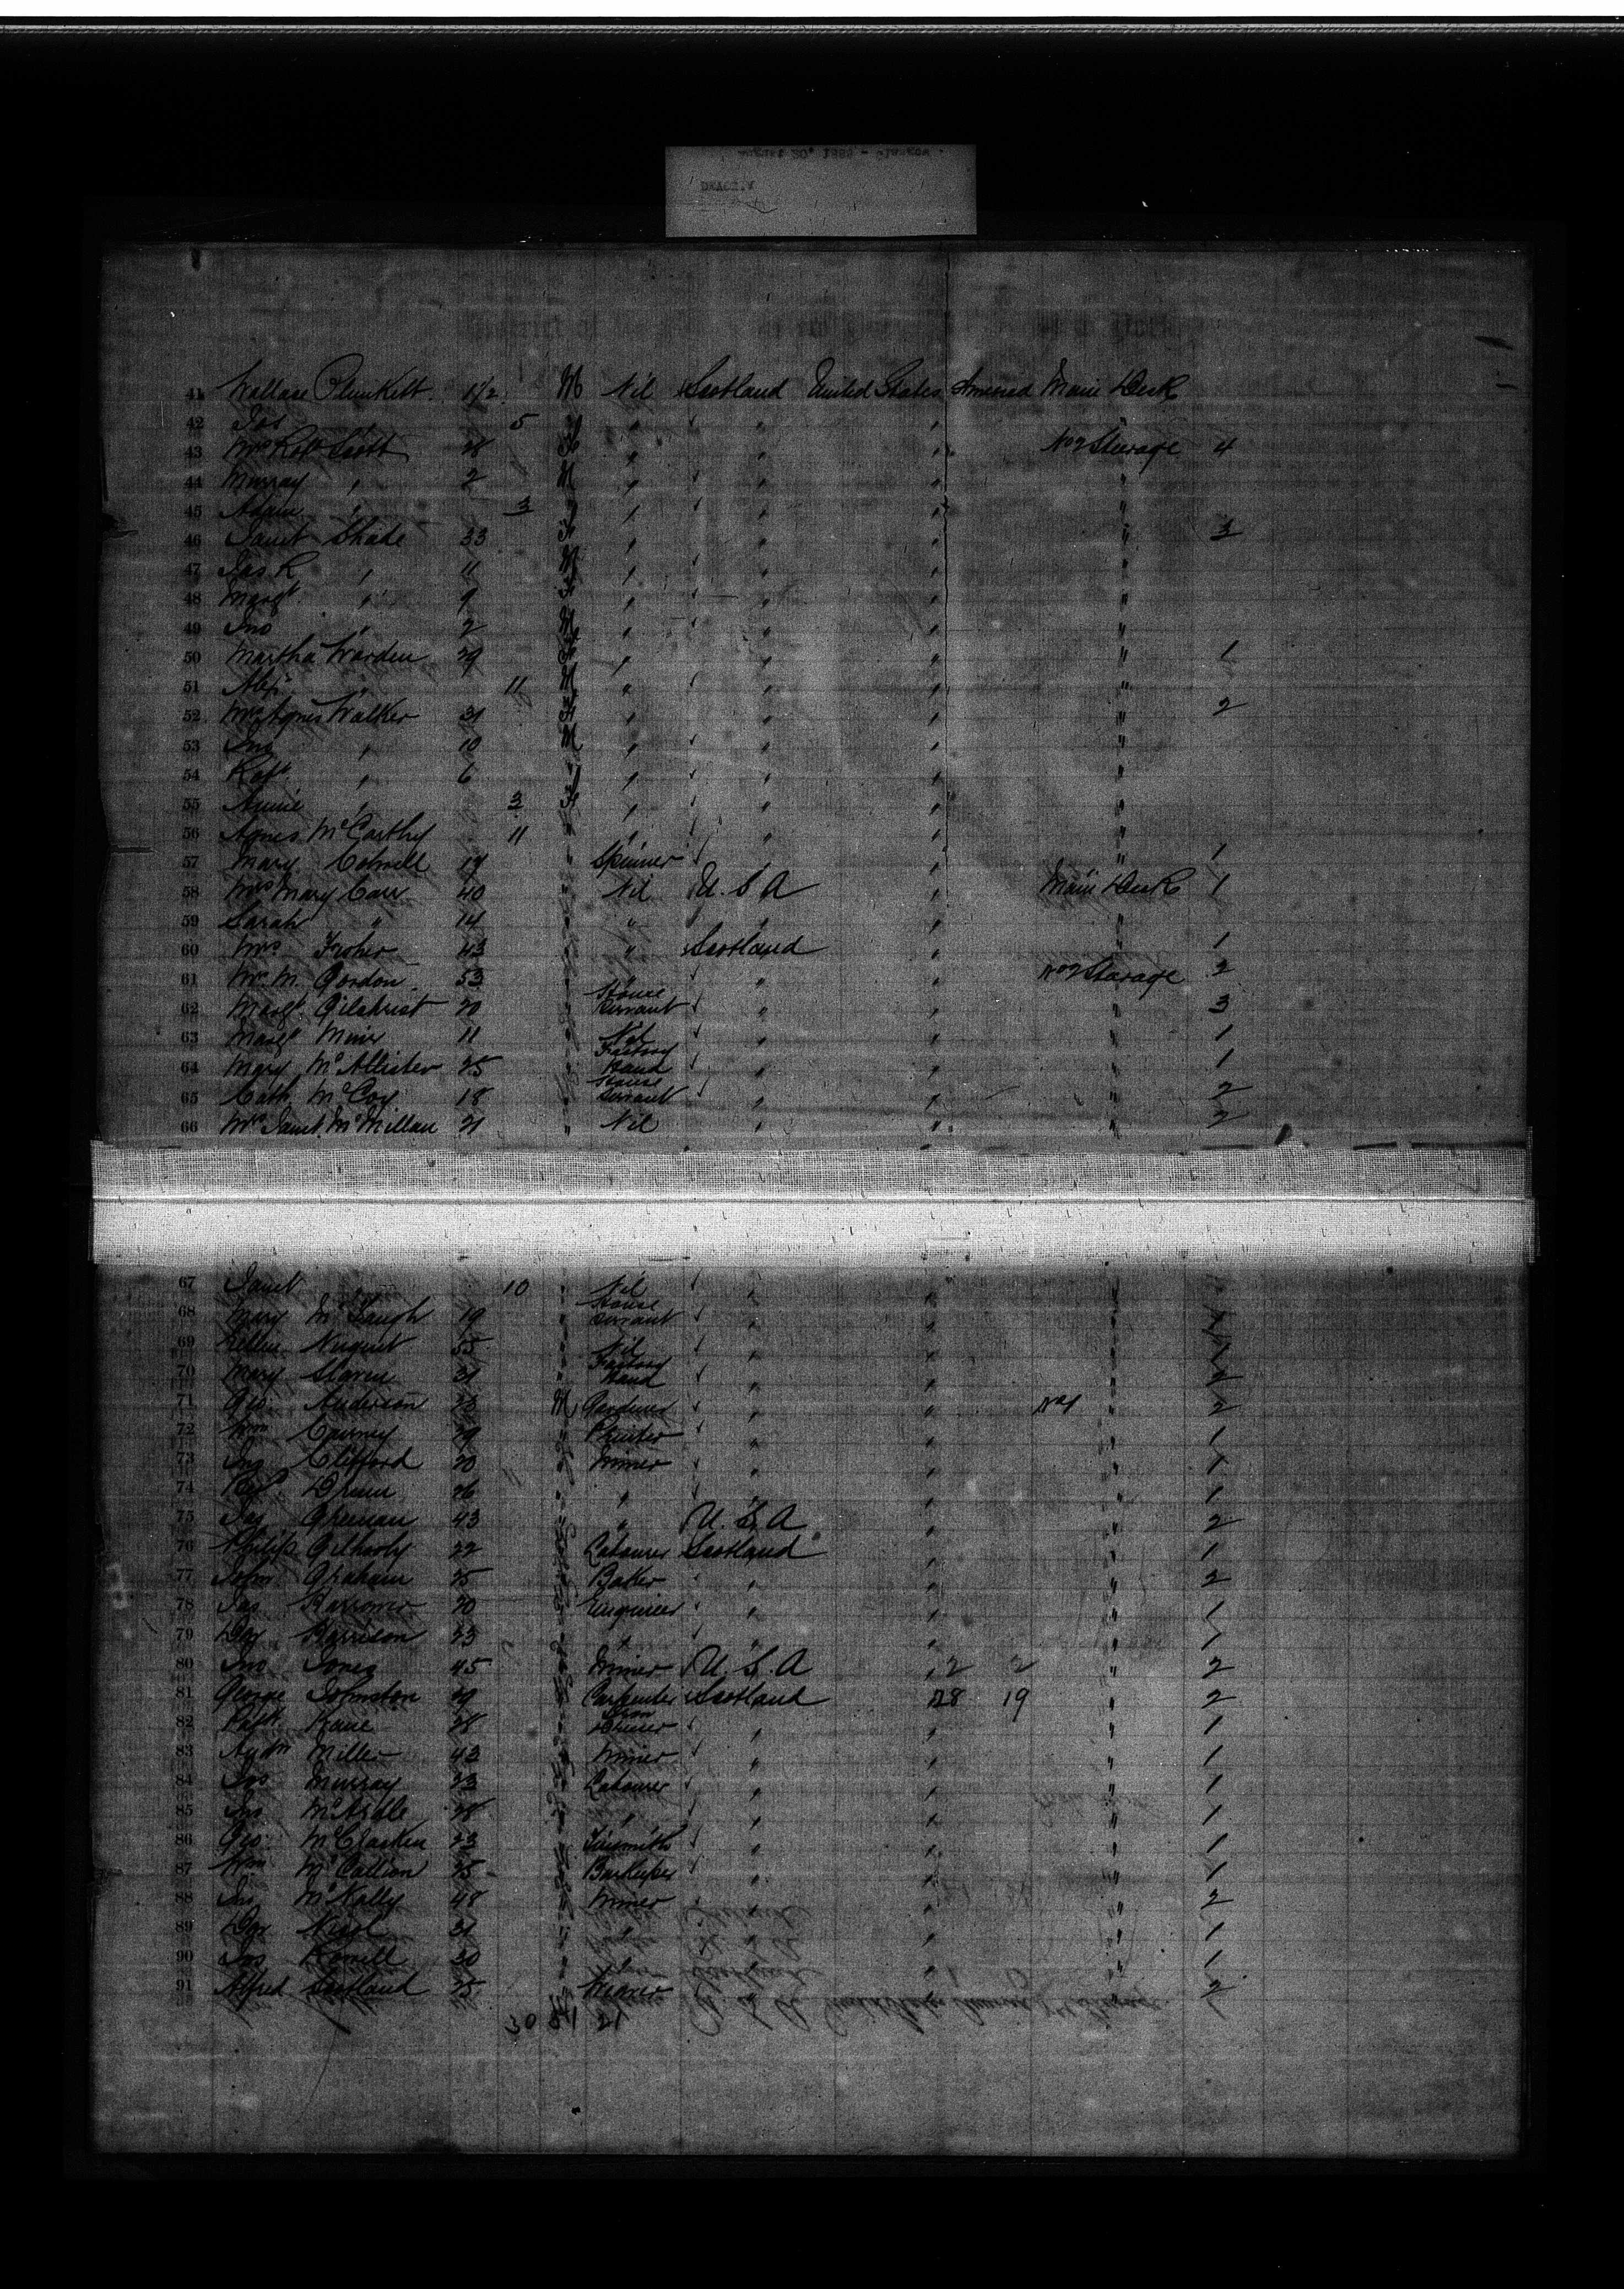 41 Wallace Plunkett 1 1/2 M Nil Scotland United States Amerced Main Deck
42 Jas " 5 " " " "
43 Mrs Robt Scott 28 F " " " No 2 Steerage 4
44 Murray " 2 M " " " "
45 Adam " 3 " " " " "
46 Janet Shade 33 F " " " " 3
47 Jas R " 11 M " " " "
48 Margt " 9 F " " " "
49 Jno " 2 M " " " "
50 Martha Warden 29 F " " " " 1
51 Alex " 11 M " " " "
52 Mrs Agnes Walker 31 F " " " " 2
53 Jno " 10 M " " " "
54 Robt " 6 " " " " "
55 Annie " 3 F " " " "
56 Agnes McCarthy 11 " " " " "
57 Mary Colwell 17 " Spinner " " " 1
58 Mrs Mary Carr 40 " Nil U.S.A " Main Deck 1
59 Sarah " 14 " " " " "
60 Mrs Fisher 43 " " Scotland " " 1
61 Mrs M. Gordon 53 " " " " No 2 Steerage 2
62 Margt Gilchrist 20 " House Servant " " " 3
63 Margt Muir 11 " Nil " " " 1
64 Mary McAllister 25 " Factory Hand " " " 1
65 Cath McCoy 18 " House Servant " " " 2
66 Mrs Janet McMillan 21 " Nil " " " 2
67 Janet " 10 " Nil " " "
68 Mary McGaugh 19 " House Servant " " " 1
69 Ellen Nugent 55 " Nil " " " 1
70 Mary Slaven 31 " Factory Hand " " " 2
71 Geo. Anderson 28 M Gardener " " No 1 " 2
72 Wm Cairney 29 " Printer " " " 1
73 Jno Clifford 20 " Miner " " " 1
74 Drum 26 " " " " " 1
75 Jas 43 " " U.S.A " " 2
76 Philip 22 " Labourer Scotland " " 1
77 John Graham 25 " Baker " " " 2
78 Jas Barrower 20 " Engineer " " " 1
79 Harrison 23 " " " " " 1
80 Jno Jones 45 " Miner U.S.A " 2 2 " 2
81 George Johnston 29 " Carpenter Scotland 28 19 " 2
82 Patk Kane 28 " Iron " " " 1
83 Andw Miller 43 " Miner " " " 1
84 Jas Murray 23 " Labourer " " " 1
85 Jno McArdle 28 " " " " " 1
86 Geo. McClacken 23 " Tinsmith " " " 1
87 Wm McCallion 25 " Barkeeper " " " 1
88 Jno McNally 48 " Miner " " " 2
89 Nicol 31 " " " " " 1
90 Jos 30 " " " " " 1
91 Alfred Scotland 25 " Weaver " " " 2
30 21